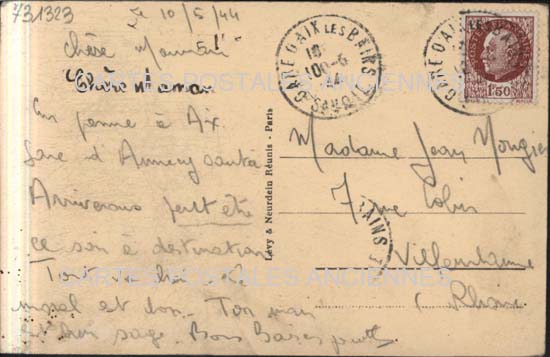 731323
Le 10/5/44
Chère Maman!
Chère Maman
En panne à Aix
Gare d'Annecy sautée
Arriverons peut être
ce soir à destination
Tout va bien
moral et bon. Ton mari
et bien sage. Bons Baisers
Madame Jean
7 rue Colin
Villeurbanne
(Rhône
GARE D'AIX LES BAINS
10-5
44
SAVOIE
GARE D'AIX LES BAINS
BAINS
1F50
Lévy & Neurdein Réunis - Paris
CARTES POSTALES ANCIENNES
CARTES POSTALES ANCIENNES